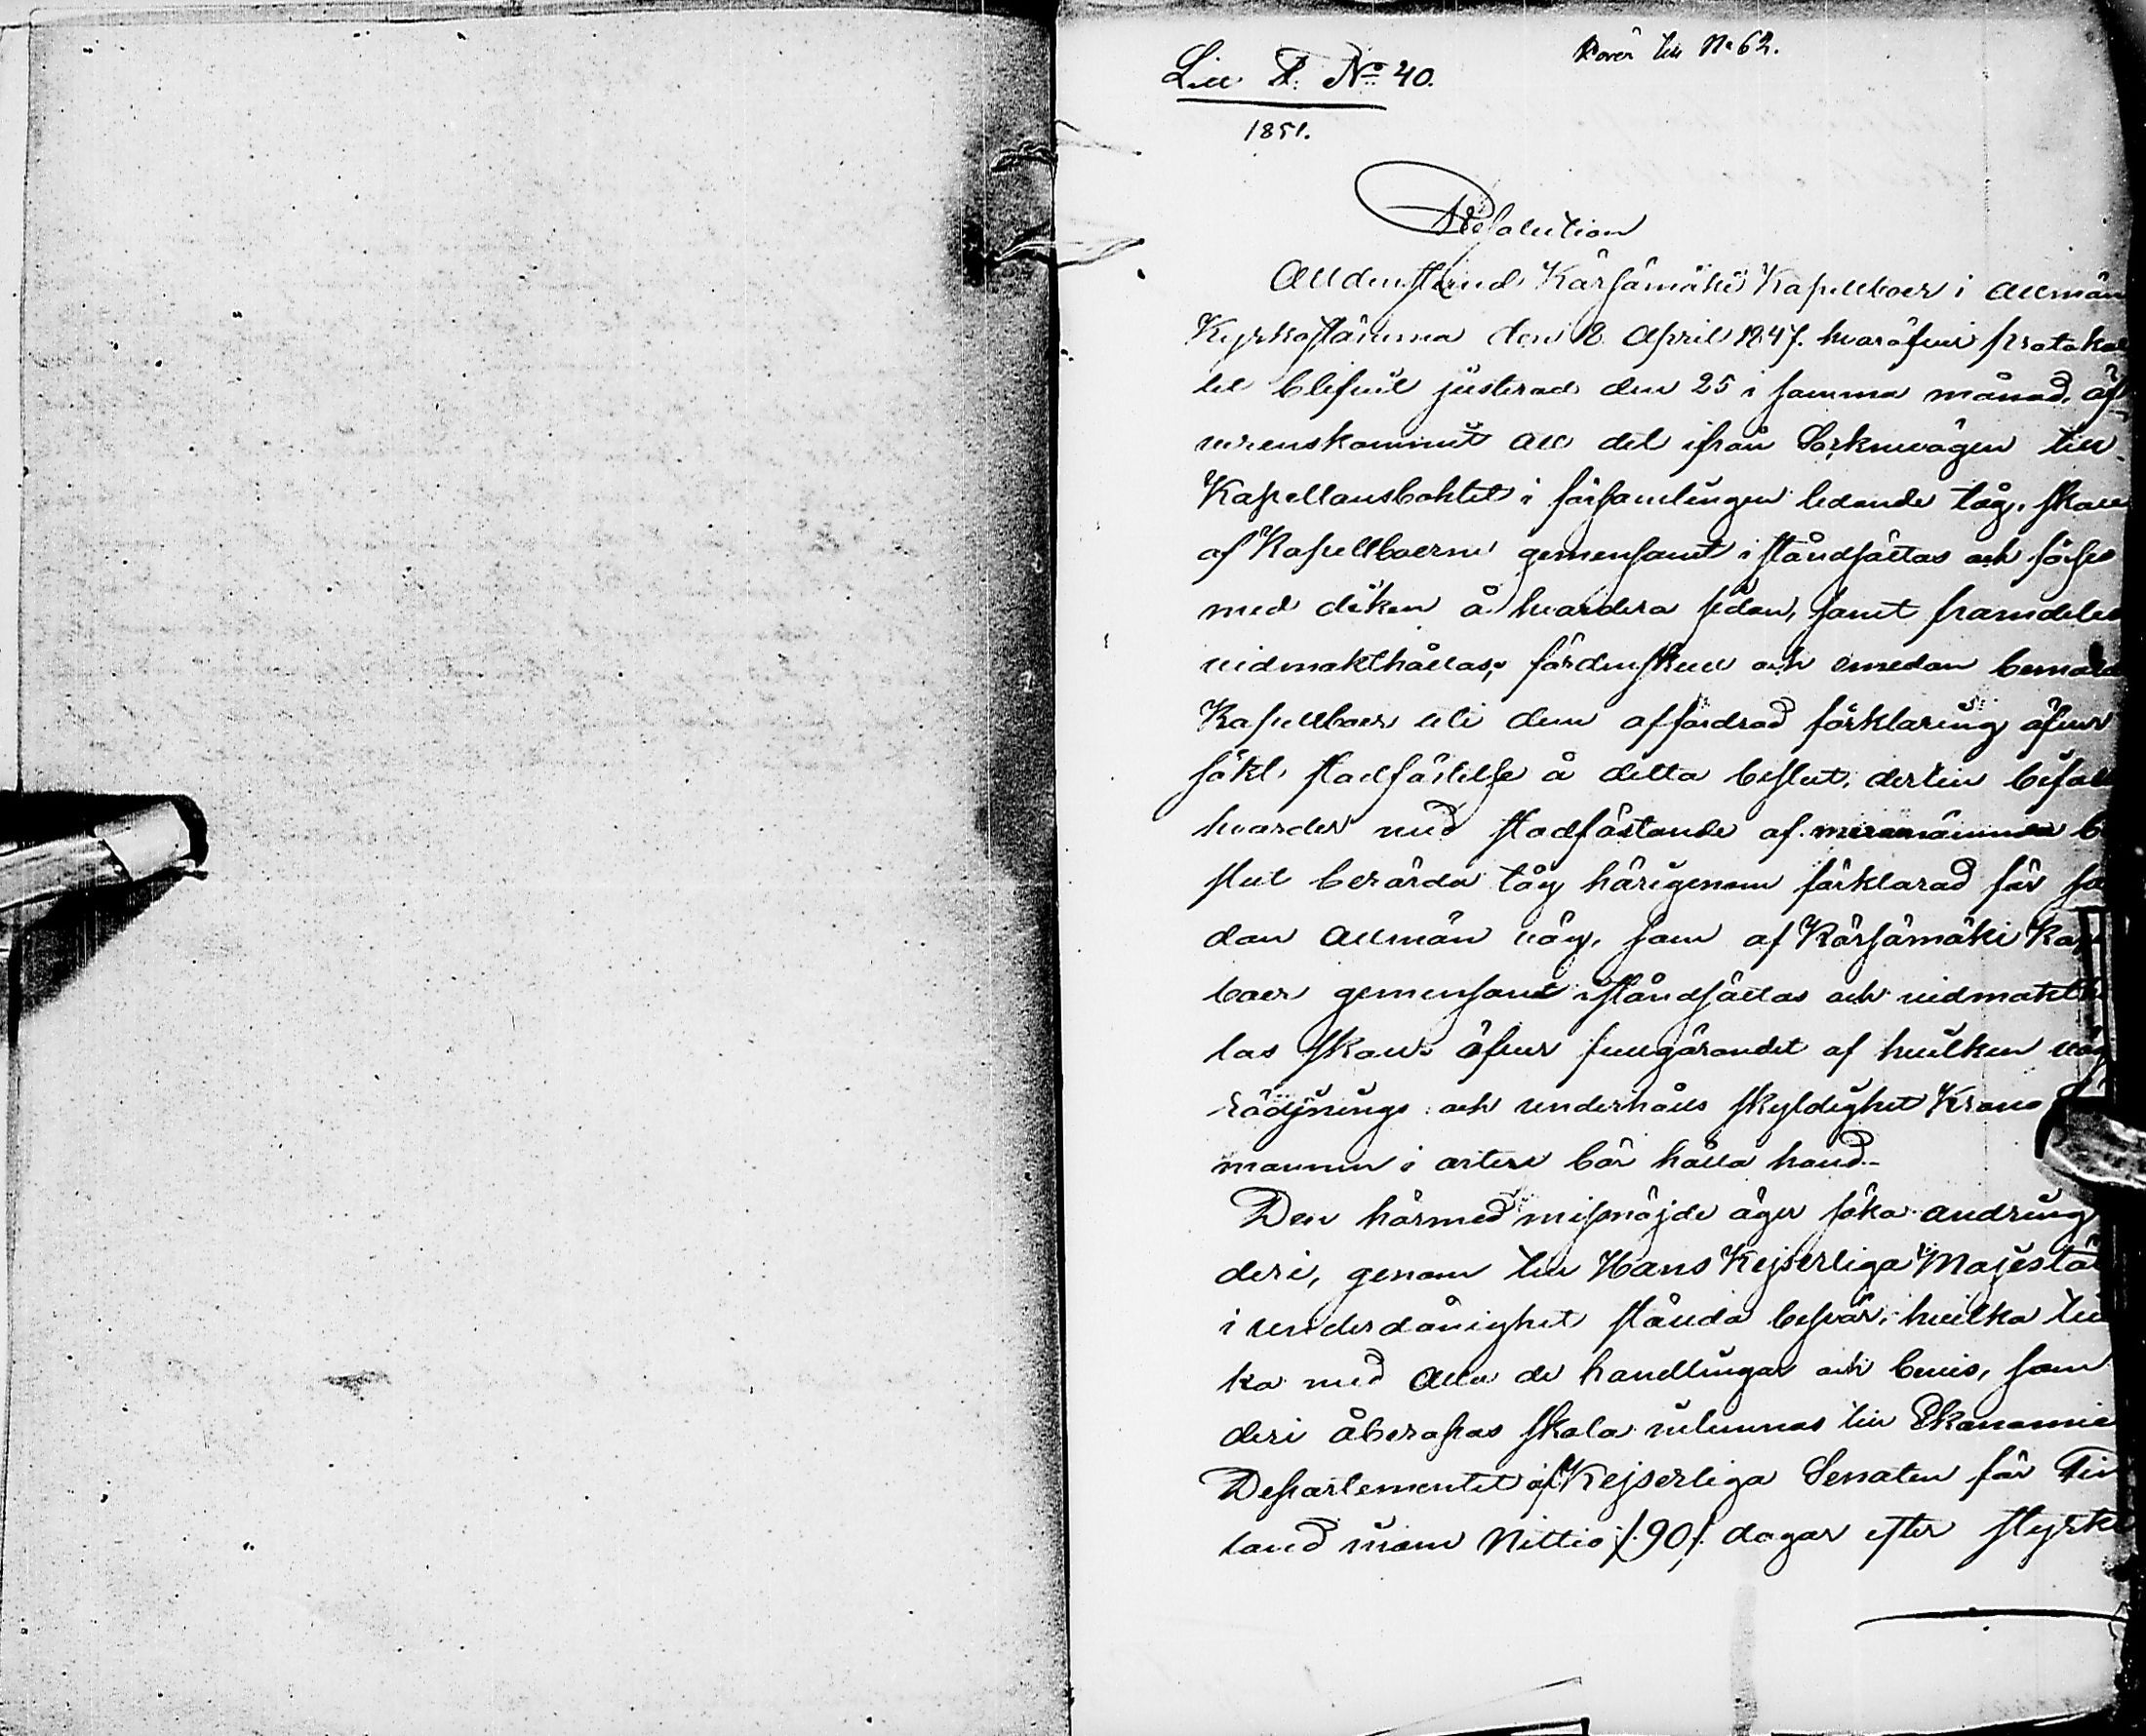 Litt P. No 40.
till No 62.
1851.
Resolution
Alldenstund Kärsämäki Kapellboer i allmän
Kyrkostämma den 18 April 1847. hvaröfver protokol
let blifvit justerad den 25 i samma månad, öf
verenskommit att det ifrån Socknevägen till
Kapellansbohlet i församlingen ledande tåg, skall
af Kapellboerne gemensamt iståndsättas och förses
med diken å hvardera sidan, samt framdeles
vidmakthållas; fördenskull och emedan bemälde
Kapellboer uti dem affordrad förklaring öfver
sökt stadfästelse å detta beslut, dertill bifall
varder med stadfästande af merenämnda be
slut berörda tåg härigenom förklarad för så
dan allmän väg, som af Kärsämäki Kapell
boer gemensamt iståndsättas och vidmakthål
las skall. öfver fullgörandet af hvilken väg
rödjnings och underhålls skyldighet Krono
mannen i orten bör hålla hand.-
Den härmed missnöjde äger söka andring
deri, genom till Hans Kejserliga Majestät
i underdånighet stånda besvär, hvilka till
ka med alla de handlingar och bevis, som
deri åberopas skola inlemnas till Ekonomie
Departementet af Kejserliga Senaten för Fin
land inom Nittio /:90/: dagar efter styrkt